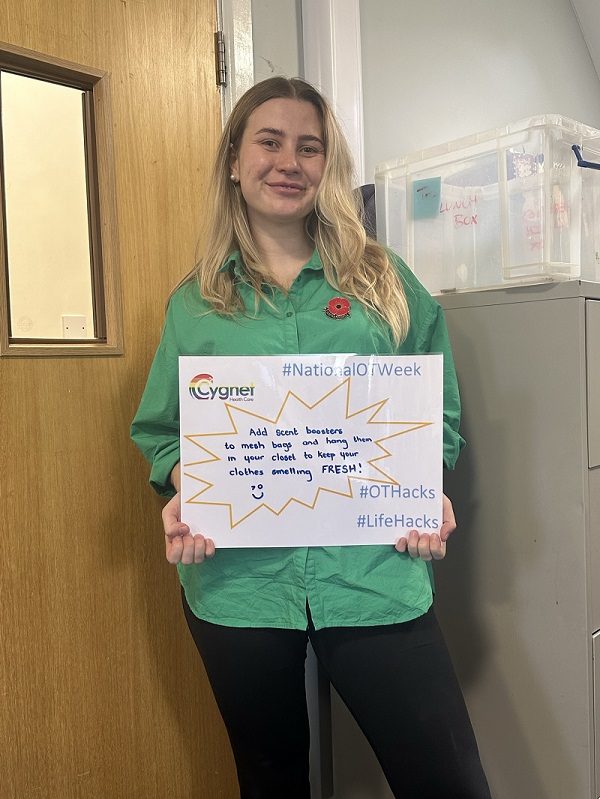 LUNCH
BOX
#NationalOTWeek
Cygnet
Health Care
Add scent boosters
to mesh bags and hang them
in your closet to keep your
clothes smelling FRESH!
#OTHacks
#LifeHacks